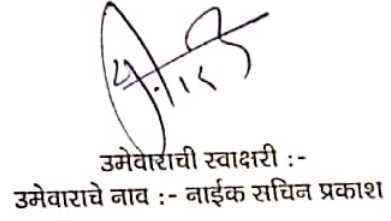 उमेवाराची स्वाक्षरी :-
उमेवाराचे नाव :- नाईक सचिन प्रकाश